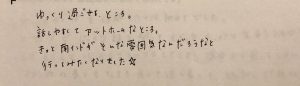 ゆっくり過ごせる ところ。
話しやすくて アットホームなところ。
きっと 南インドが そんな雰囲気なんだろうなと
行ってみたくなりました☆